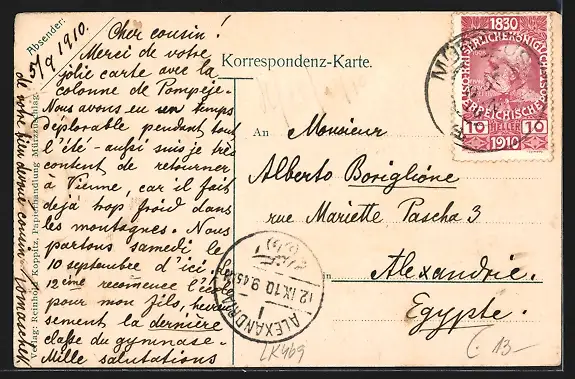 Absender:
5/9 1910.
Cher cousin!
Merci de votre
jolie carte avec la
colonne de Pompeje.
Nous avons eu un temps
déplorable pendant tout
l'été - aussi suis je très
content de retourner
à Vienne, car il fait
dejà trop froid dans
les montagnes. Nous
partons samedi le
10 septembre d'ici. Le
12ème recomence l'école
pour mon fils, heureu
sement la dernière
classe du gymnase.
Mille salutations
de votre bien devoué cousin
Verlag: Reinhold Koppitz, Papierhandlung Mürzzuschlag.
Korrespondenz-Karte.
An Monsieur
Alberto Bosiglione
rue Mariette Pascha 3
in Alexandrie.
Egypte.
1830
KAISERLICHE KÖNIGLICHE
ÖSTERREICHISCHE POST
10 HELLER 10
1910
MÜRZ
ALEXANDRIA
12.IX.10 9.45
LK469
13-